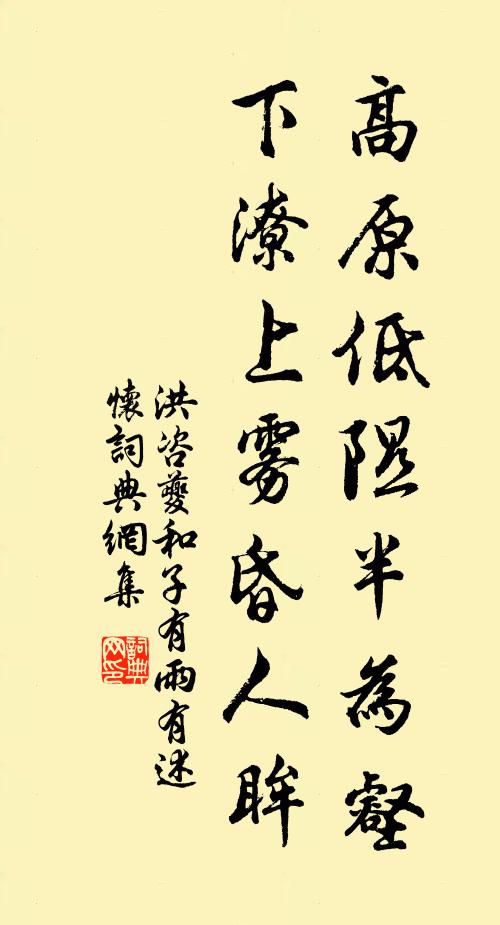 高原低隰半為壑
下潦上雾昏人眸
洪咨夔和子有雨有述
懷詞典網集
詞典網印